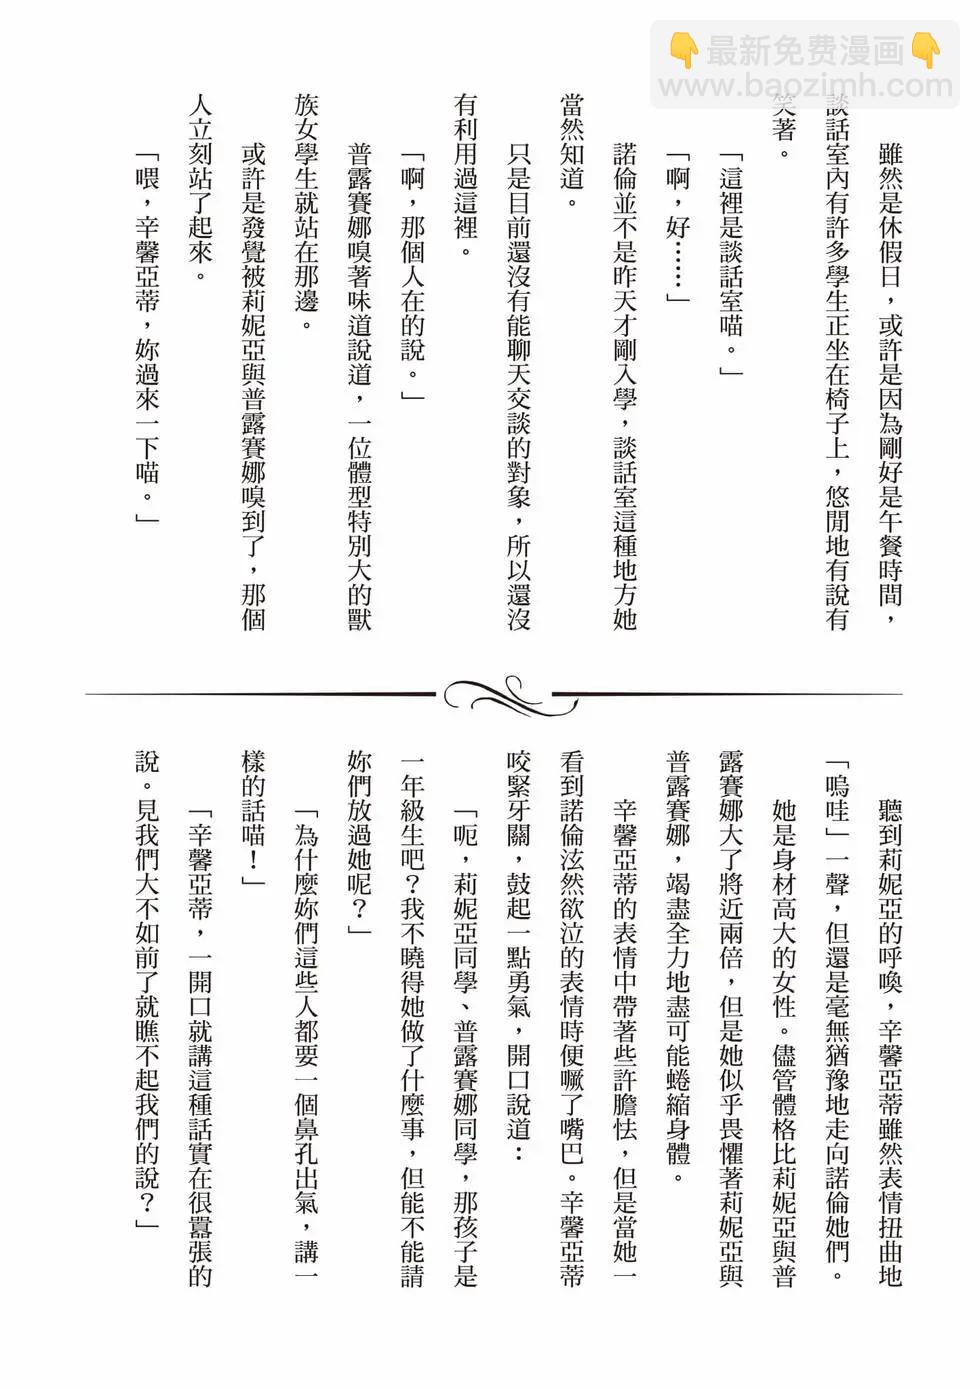 👇最新免费漫画👇
www.baozimh.com
雖然是休假日，或許是因為剛好是午餐時間，
談話室內有許多學生正坐在椅子上，悠閒地有說有
笑著。
「這裡是談話室喵。」
「啊，好……」
諾倫並不是昨天才剛入學，談話室這種地方她
當然知道。
只是目前還沒有能聊天交談的對象，所以還沒
有利用過這裡。
「啊，那個人在的說。」
普露賽娜嗅著味道說道，一位體型特別大的獸
族女學生就站在那邊。
或許是發覺被莉妮亞與普露賽娜嗅到了，那個
人立刻站了起來。
「喂，辛馨亞蒂，妳過來一下喵。」
聽到莉妮亞的呼喚，辛馨亞蒂雖然表情扭曲地
「嗚哇」一聲，但還是毫無猶豫地走向諾倫她們。
她是身材高大的女性。儘管體格比莉妮亞與普
露賽娜大了將近兩倍，但是她似乎畏懼著莉妮亞與
普露賽娜，竭盡全力地盡可能蜷縮身體。
辛馨亞蒂的表情中帶著些許膽怯，但是當她一
看到諾倫泫然欲泣的表情時便噘了嘴巴。辛馨亞蒂
咬緊牙關，鼓起一點勇氣，開口說道：
「呃，莉妮亞同學、普露賽娜同學，那孩子是
一年級生吧？我不曉得她做了什麼事，但能不能請
妳們放過她呢？」
「為什麼妳們這些人都要一個鼻孔出氣，講一
樣的話喵！」
「辛馨亞蒂，一開口就講這種話實在很囂張的
說。見我們大不如前了就瞧不起我們的說？」